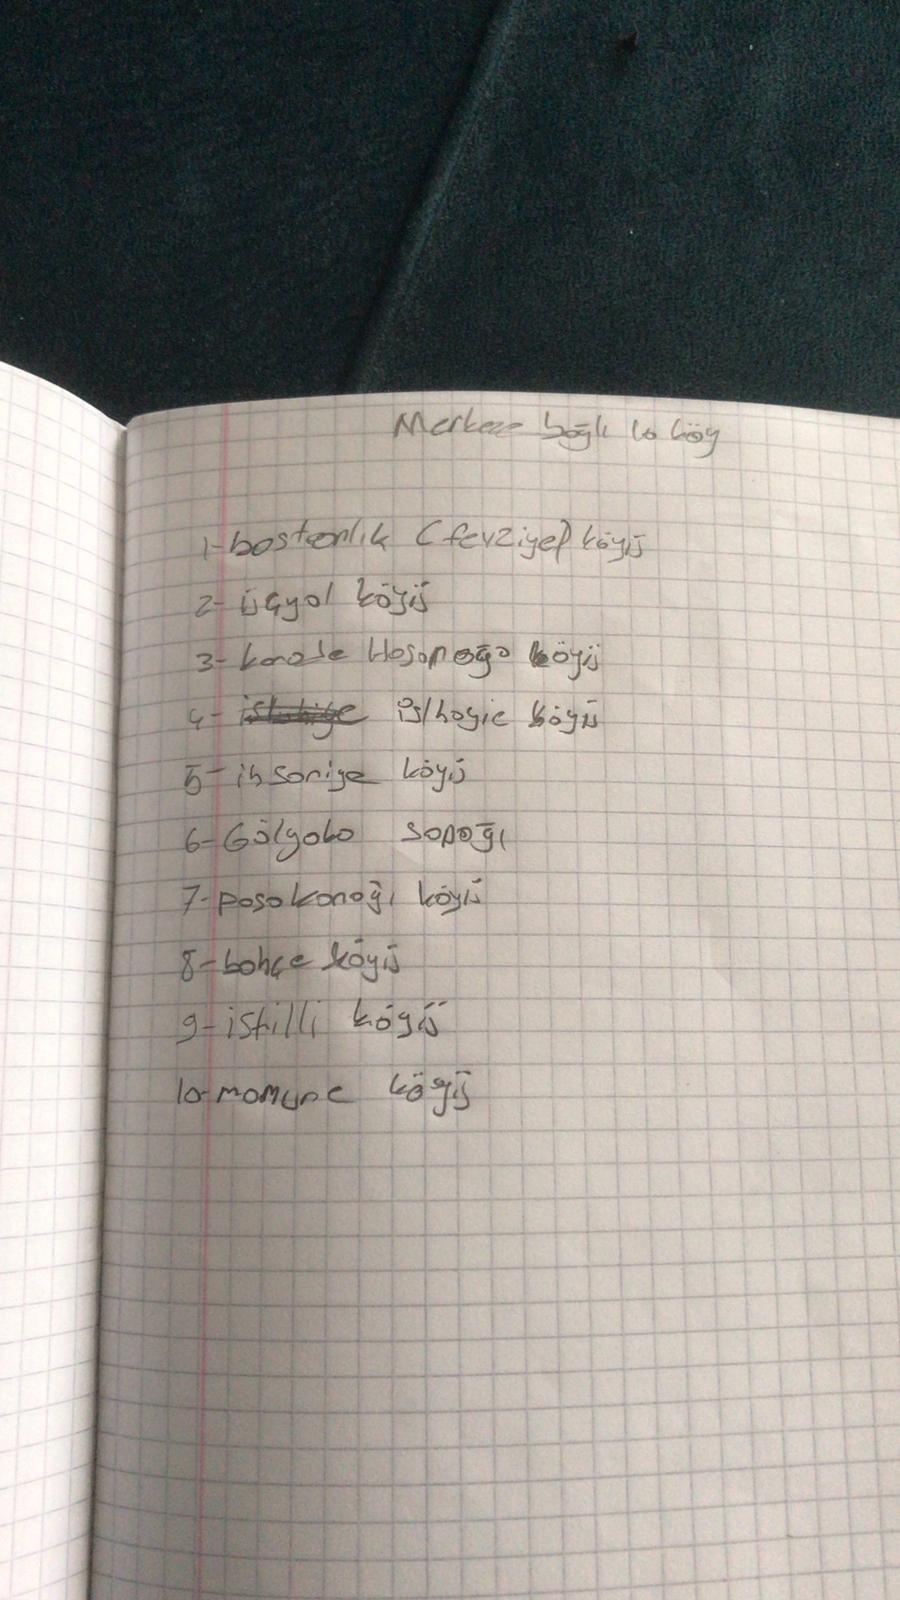 Merkeze bağlı 10 köy
1- bostanlık (fevziye) köyü
2- üçyol köyü
3- kazale Hasanağa köyü
4- islhayie köyü
5- ihsaniye köyü
6- Gölyaka sapağı
7- paşakonağı köyü
8- bahçe köyü
9- istilli köyü
10- mamure köyü